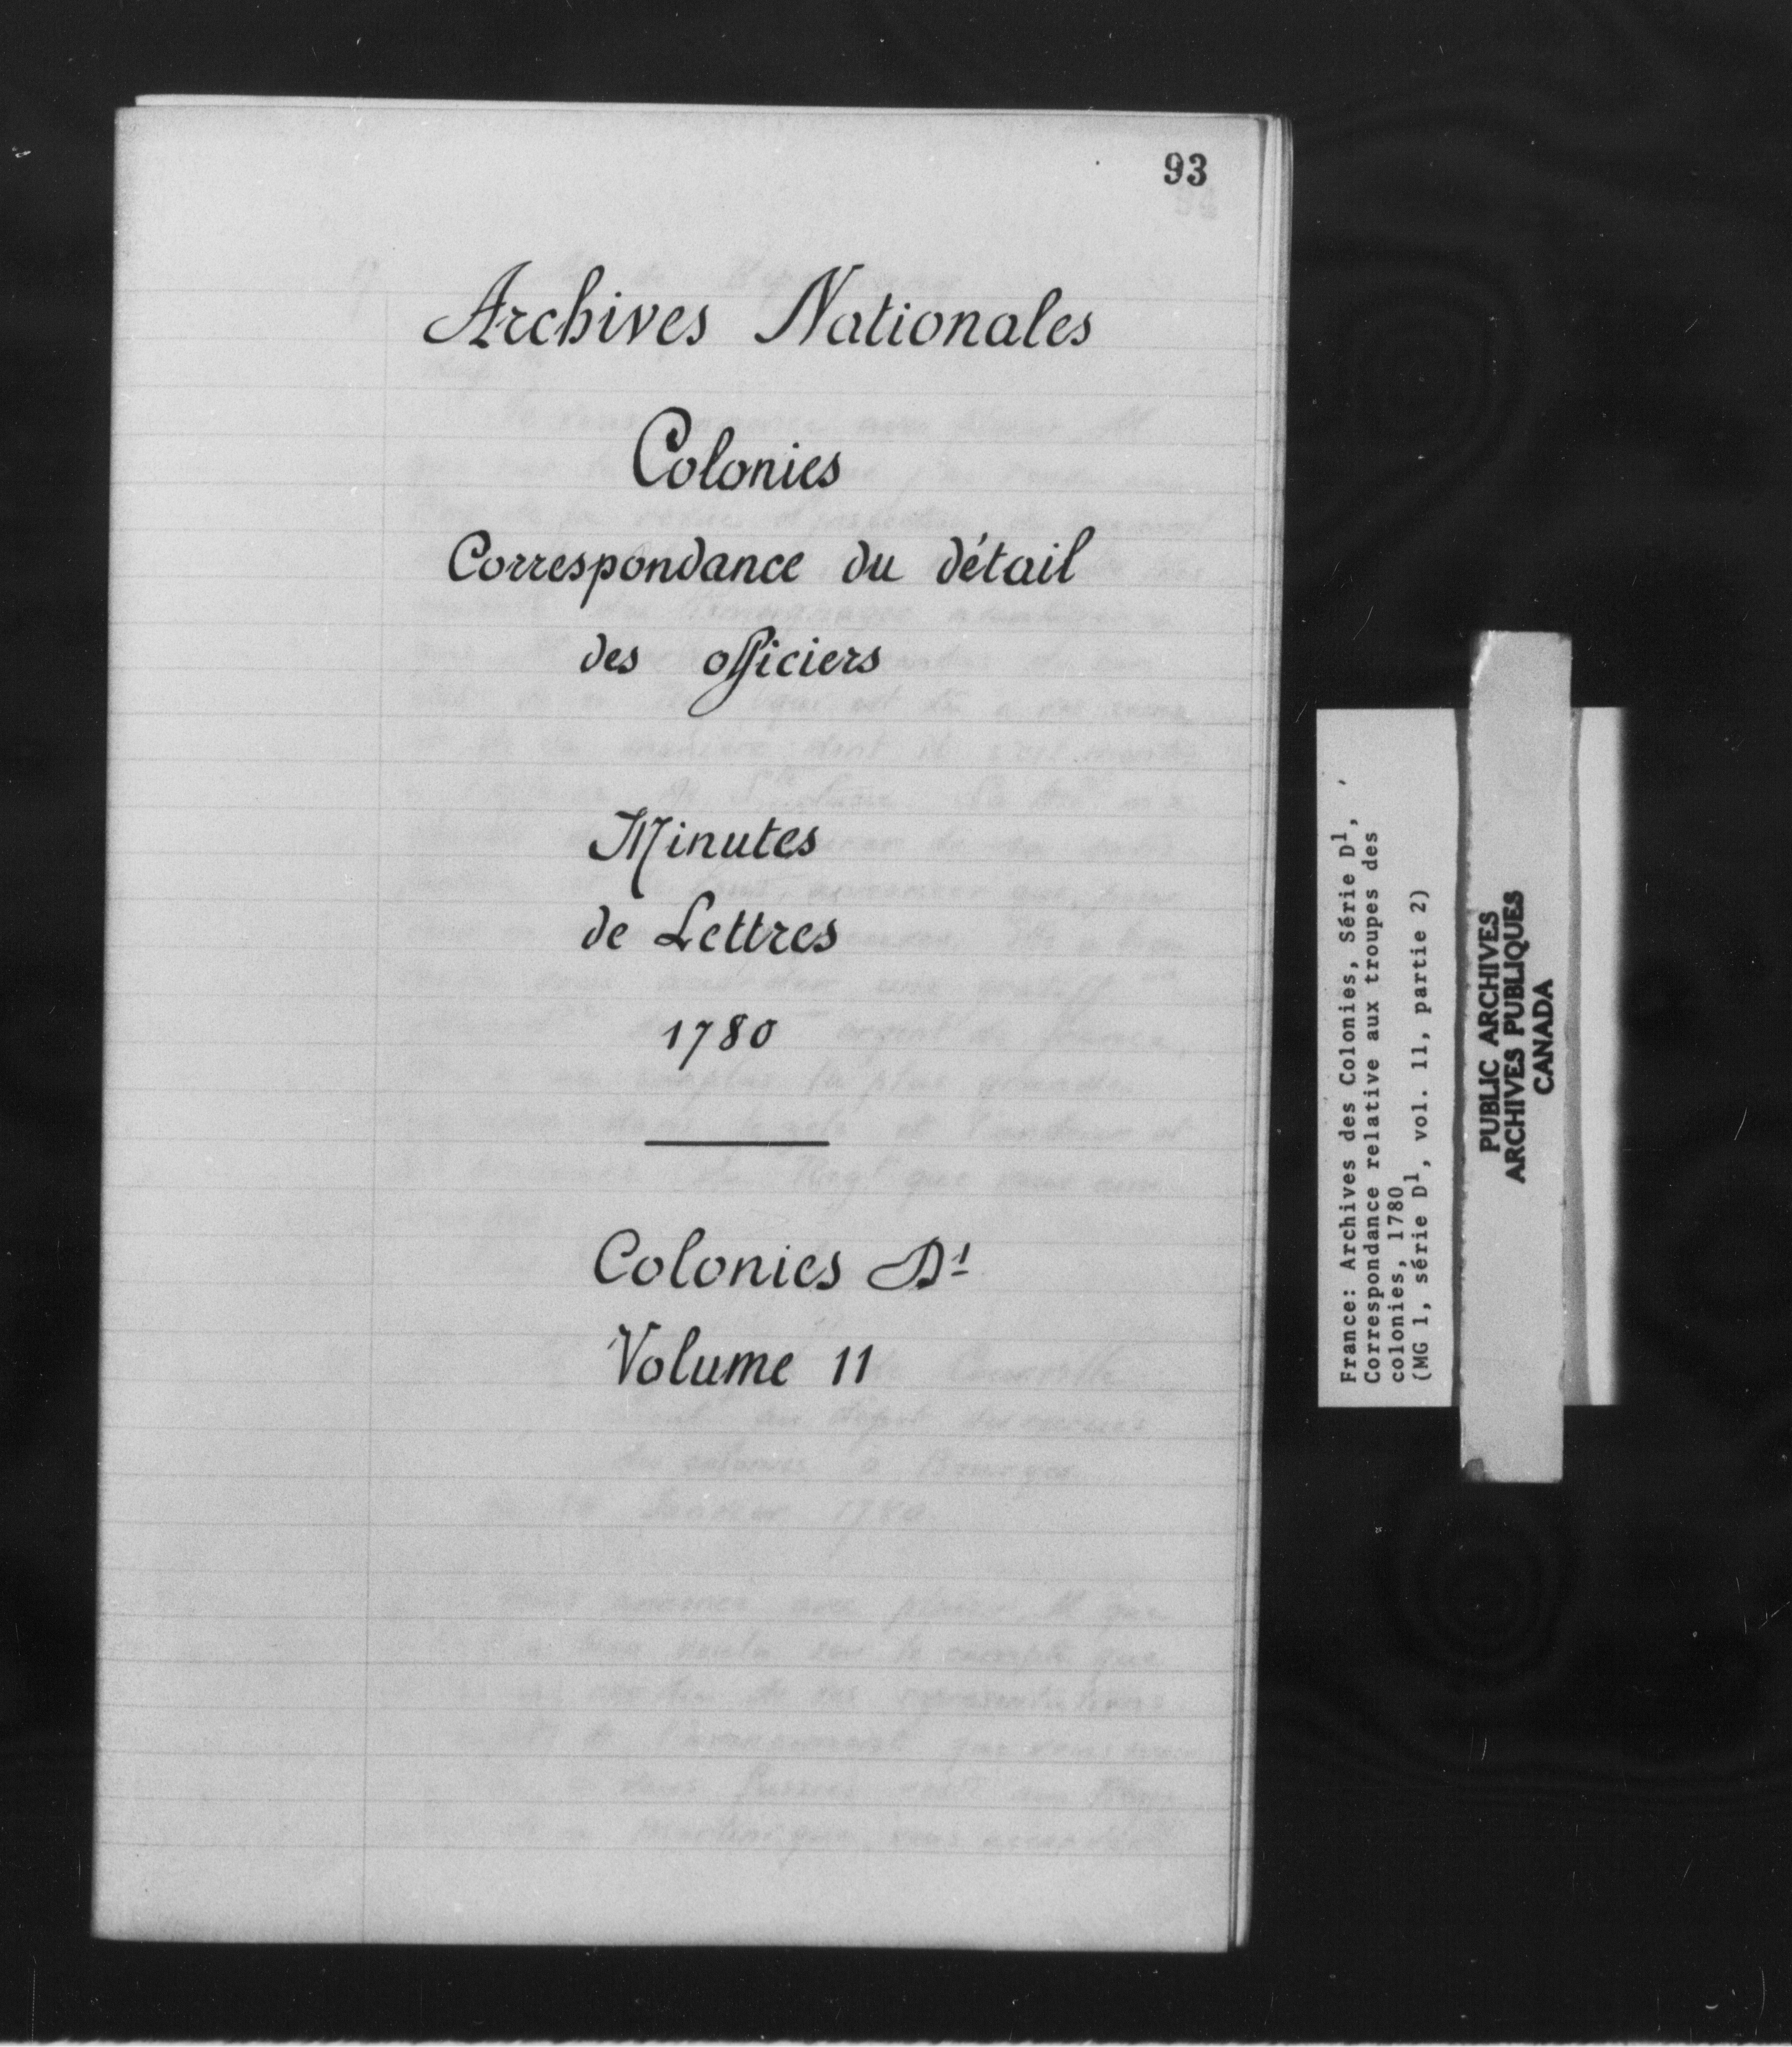 93
Archives Nationales
Colonies
Correspondance du détail
des officiers
Minutes
de Lettres
1780
Colonies D¹
Volume 11
France: Archives des Colonies, Série D¹,
Correspondance relative aux troupes des
colonies, 1780
(MG 1, série D¹, vol. 11, partie 2)
PUBLIC ARCHIVES
ARCHIVES PUBLIQUES
CANADA